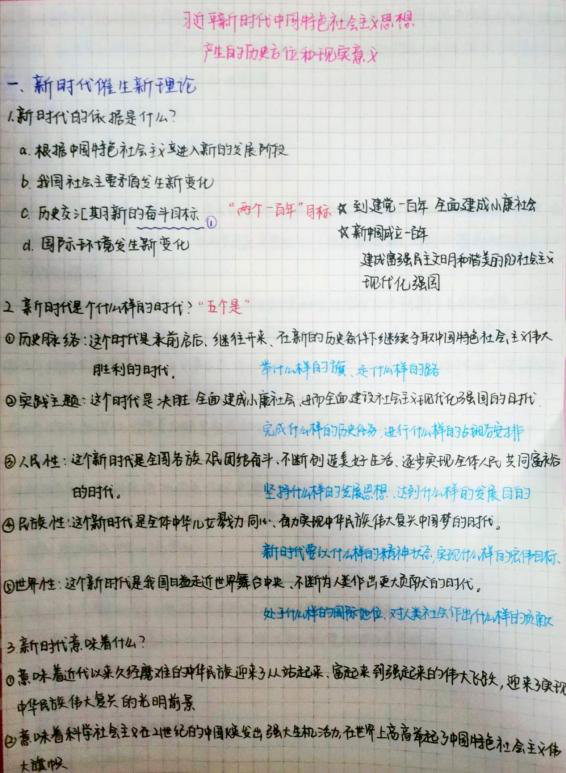 习近平新时代中国特色社会主义思想
产生的历史方位和现实意义
一、新时代催生新理论
1.新时代的依据是什么?
a.根据中国特色社会主义进入新的发展阶段
b.我国社会主要矛盾发生新变化
c.历史交汇期新的奋斗目标① “两个一百年”目标 ☆ 到建党一百年 全面建成小康社会
☆ 新中国成立一百年
d.国际环境发生新变化
建成富强民主文明和谐美丽的社会主义
现代化强国
2.新时代是个什么样的时代?“五个是”
①历史脉络:这个时代是承前启后、继往开来、在新的历史条件下继续夺取中国特色社会主义伟大
胜利的时代。 举什么样的旗、走什么样的路
②实践主题:这个时代是决胜全面建成小康社会、进而全面建设社会主义现代化强国的时代.
完成什么样的历史任务、进行什么样的战略安排
③人民性:这个新时代是全国各族人民团结奋斗、不断创造美好生活、逐步实现全体人民共同富裕
的时代。 坚持什么样的发展思想、达到什么样的发展目的
④民族性:这个新时代是全体中华儿女戮力同心、奋力实现中华民族伟大复兴中国梦的时代。
新时代要以什么样的精神状态,实现什么样的宏伟目标、
⑤世界性:这个新时代是我国日益走近世界舞台中央、不断为人类作出更大贡献的时代。
处于什么样的国际地位、对人类社会作出什么样的贡献
3.新时代意味着什么?
①意味着近代以来久经磨难的中华民族迎来了从站起来、富起来到强起来的伟大飞跃,迎来了实现
中华民族伟大复兴的光明前景
②意味着科学社会主义在21世纪的中国焕发出强大生机活力,在世界上高高举起了中国特色社会主义伟
大旗帜